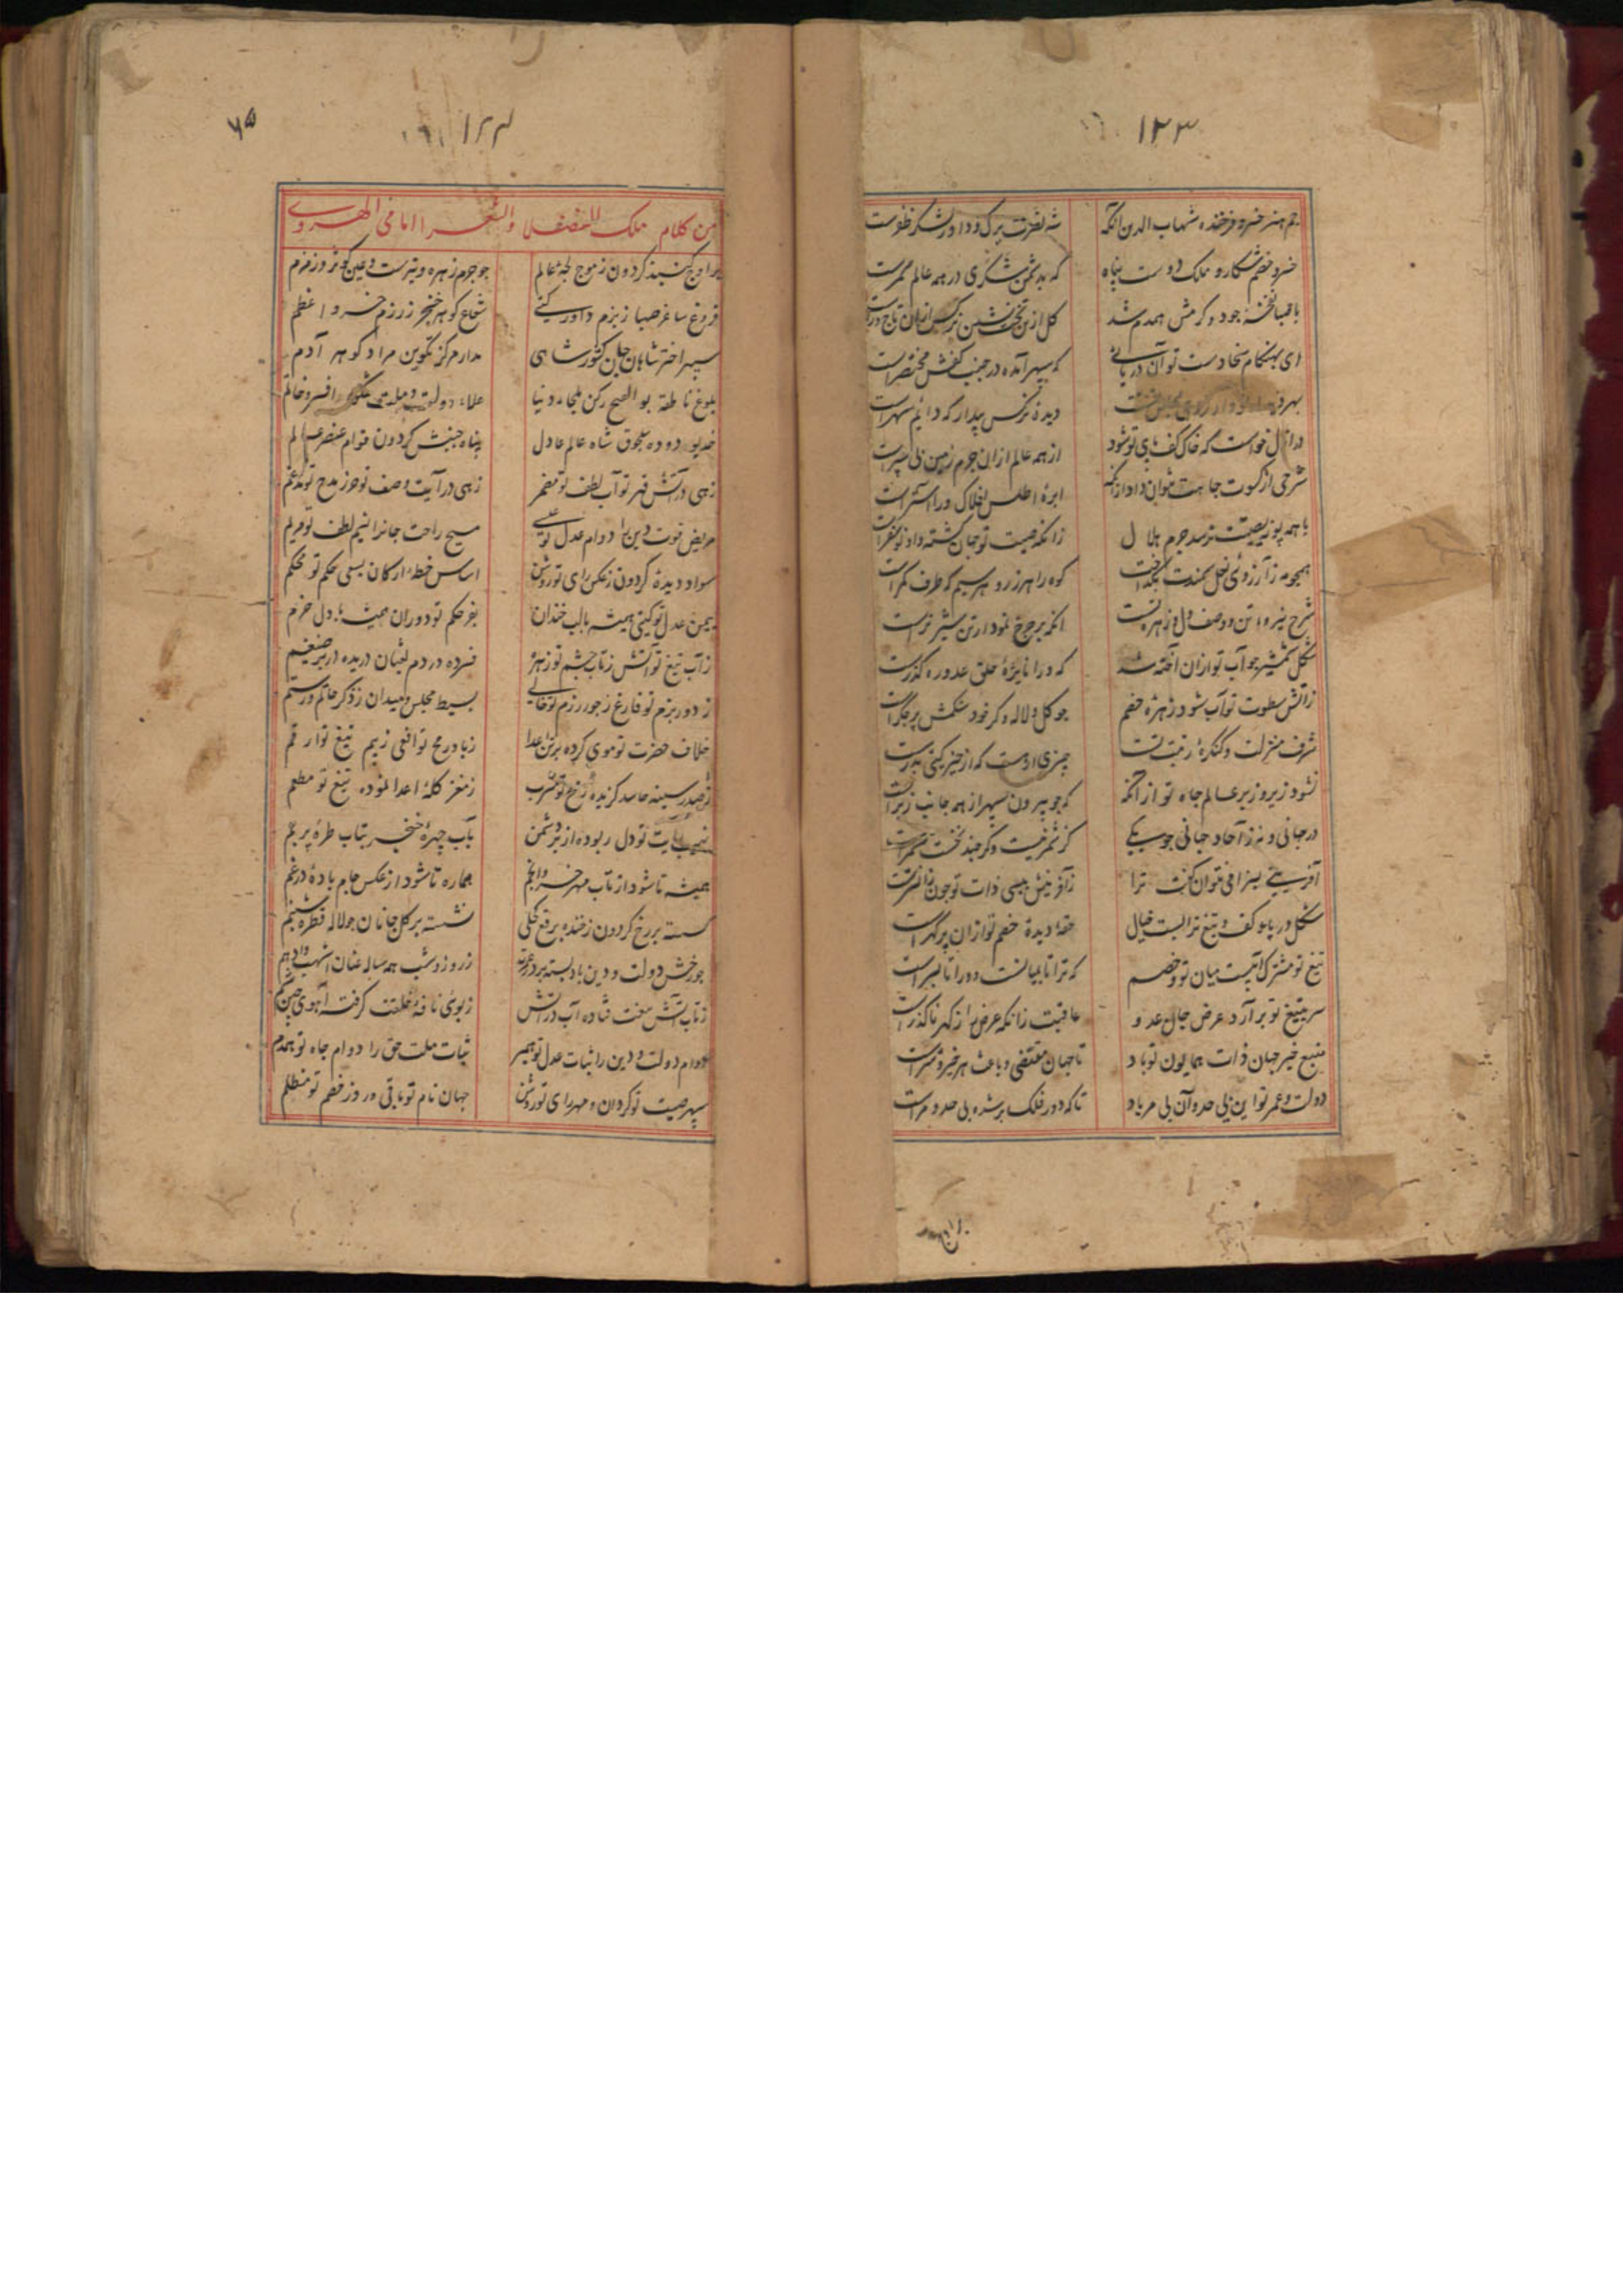 ۱۲۳
جم هنر خسرو فرخنده شهاب الدین انکه شه نصرت یزک و داور لشکر ظفرست
خسرو خصم شکار و ملک دوست پناه که بدشمن شکری در همه عالم سمرست
با قبا غنچه جود و کرمش همدم شد کل ازین تخت نشین نرکس ازان تاج ورست
ای بهنکام سخا دست تو آن دریائی که سپهر آمده در جنب کفش مختصرست
بهر دیده نرکس بیدار که دایم سهرست
در ازل خواست که خاک کف پای تو شود از همه عالم ازان جرم زمین پی سپرست
شرحی از کسوت جاهت نتوان داد ازانکه ابره اطلس افلاک ورا آسترست
با همه پویه بصیتت نرسد جرم هلال زانکه صیت تو جهان کشته و او نوسفرست
همچو مه ز آرزوی نعل سمندت بکداخت کوه را هر زر و هر سیم که طرف کمرست
شرح نیروی تن و وصف دل و زهره تست انکه بر چرخ نمودار تن شیر نرست
شکل شمشیر چو آب تو ازان آخته شد که ورا نایژه حلق عدو ره کذرست
زآتش سطوت تو آب شود زهره خصم چو کل و لاله و کر خود شکمش پر جکرست
شرف منزلت و کنکره رتبت تست چیزی ار هست که از حیز کیتی بدرست
نشود زیر و زبر عالم جاه تو ازانکه که چو بیرون سپهر از همه جانب زبرست
در جهانی و نه ز آحاد جهانی چو یکی کز شمر نیست و کر چند نخست شمرست
آفرینی بسزا می نتوان کفت ترا ز آفرینش بسی ذات تو چون زانسترست
شکل دریا و کف و تیغ ترا بست خیال حقه دیده خصم تو ازان پر کهرست
تیغ تو مشترک آنیست میان تو و خصم که ترا تا بمیانست و ورا تا بسرست
سر بتیغ تو برآرد عرض جان عدو عاقبت زانکه عرض را ز کهر ناکذرست
منبع خیر جهان ذات همایون تو باد تا جهان مقتضی و باعث هر خیر و شرست
دولت و عمر تو این بی حد و آن بی مر باد تا که دور فلک بر شده بی حد و مرست
۱۲۴
۶۵
من کلام ملک الفضلا و الشعرا امامی الهروی
بر اوج کنبد کردون ز موج لجه عالم چو جرم زهره و تیرست و عین کوثر و زمزم
فروغ ساغر صهبا ز بزم داور کیتی شعاع کوهر خنجر ز رزم خسرو اعظم
سپهر اختر شاهان جهان کشور شاهی مدار مرکز تکوین مراد کوهر آدم
بلوغ ناطقه بو الفتح رکن ملجاء دنیا علاء دولت و ملت افسر و خاتم
خدیو دوده سلجوق شاه عالم عادل پناه جنبش کردون قوام عنصر عالم
زهی در آتش قهر تو آب لطف تو مضمر زهی در آیت وصف تو حرز مدح تو مدغم
مریض قوت دین را دوام عدل تو عیسی مسیح راحت جانرا نسیم لطف تو مریم
سواد دیده کردون ز عکس رای تو روشن اساس خطه ارکان بسعی حکم تو محکم
بیمن عدل تو کیتی همیشه با لب خندان بفر حکم تو دوران همیشه با دل خرم
ز آب تیغ تو آتش ز تاب چشم تو زهره فسرده در دم ثعبان دریده در بر ضیغم
ز دور بزم تو فارغ ز جور رزم تو خالی بسیط مجلس و میدان ز ذکر حاتم و رستم
خلاف حضرت تو موی کرده بر تن اعدا ز باد رمح تو افعی ز بیم تیغ تو ارقم
ز صدر سینه حاسد کزیده رمح تو مشرب ز مغز کله اعدا نموده تیغ تو مطعم
تو دل ربوده از بر دشمن بآب چهره خنجر بتاب طره پرچم
همیشه تا شود از تاب مهر خسرو انجم هماره تا شود از عکس جام باده در غم
کسسته بر رخ کردون ز خنده برقع کحلی نشسته بر کل جانان چو لاله قطره شبنم
چو رخش دولت و دین باد بسته بر در عزمت ز روز و شب همه ساله عنان اشهب و ادهم
ز تاب آتش فتاده آب در آتش ز بوی نافه خلقت کرفته آهوی چین رم
دوام دولت و دین را ثبات عدل تو همبر ثبات ملت حق را دوام جاه تو همدم
سپهر صیت تو کردان و مهر رای تو روشن جهان نام تو باقی و روز خصم تو مظلم